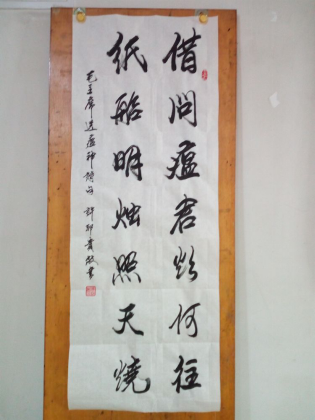 借问瘟君欲何往
纸船明烛照天烧
毛主席送瘟神诗句